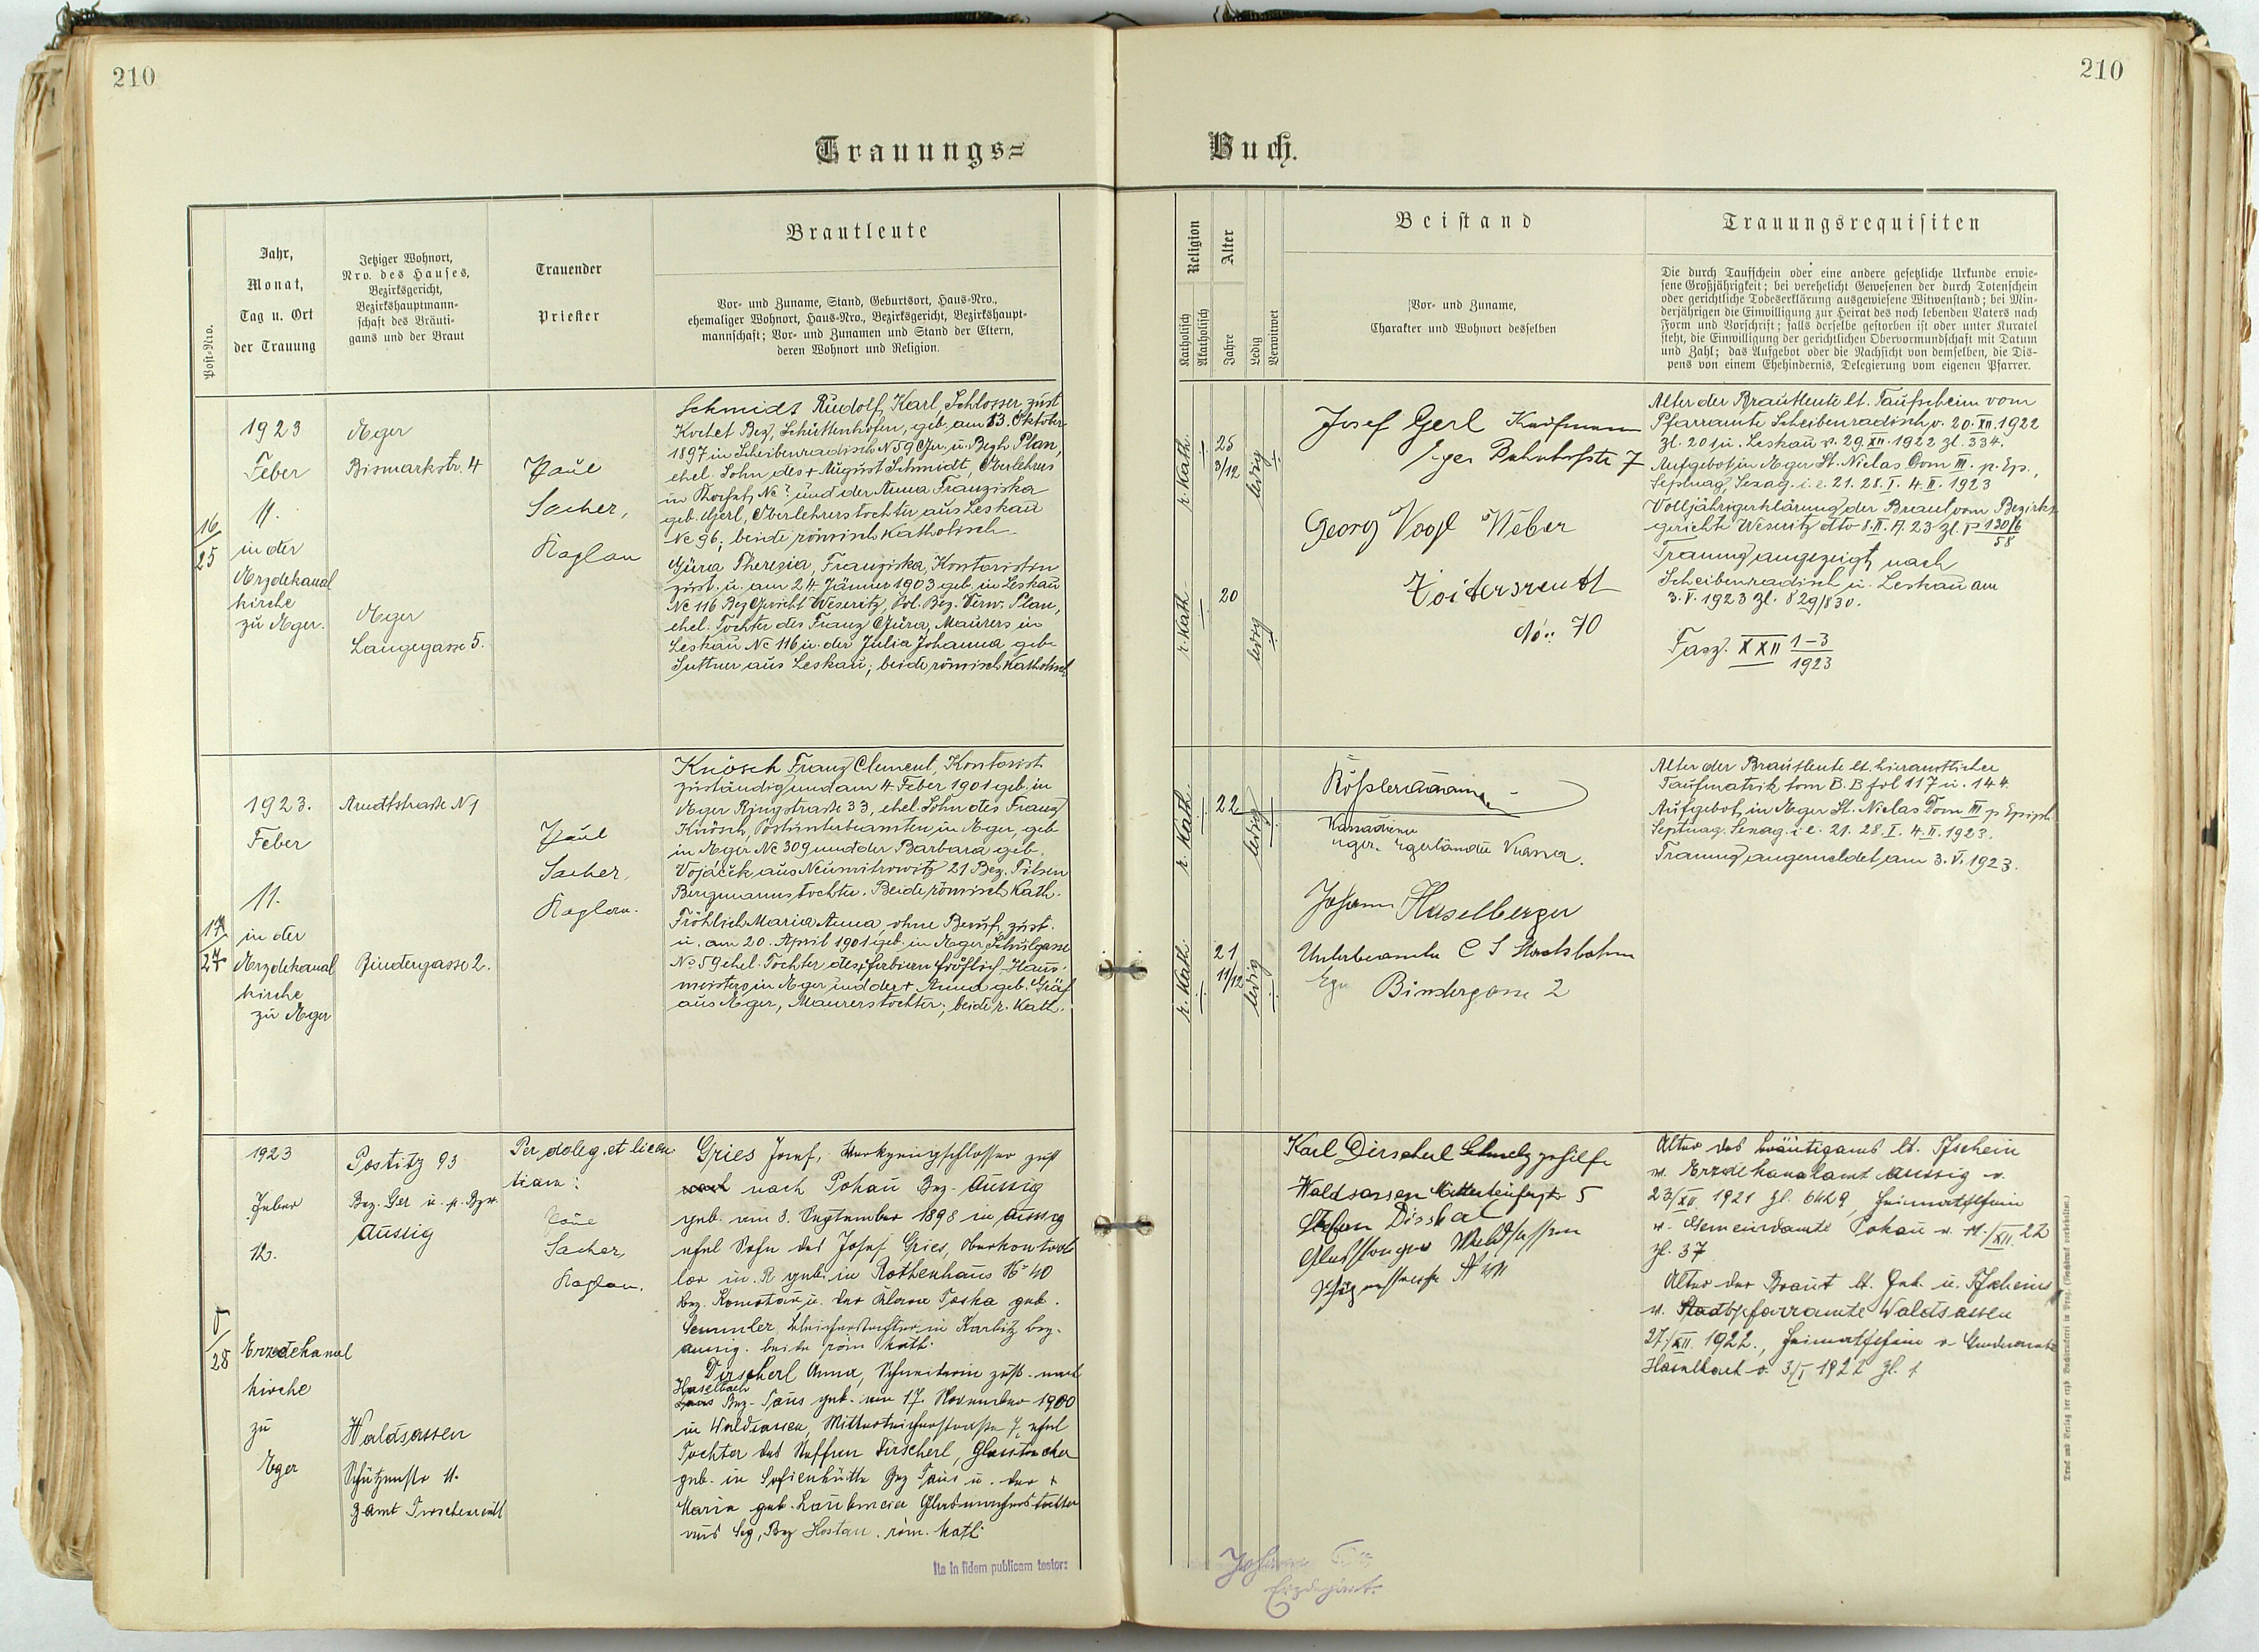 210
210
Trauungs=
Buch.
Post-Nro.
Jahr,
Monat,
Tag u. Ort
der Trauung
Jetziger Wohnort,
Nro. des Hauses,
Bezirksgericht,
Bezirkshauptmann-
schaft des Bräuti-
gams und der Braut
Trauender
Priester
Brautleute
Vor- und Zuname, Stand, Geburtsort, Haus-Nro.,
ehemaliger Wohnort, Haus-Nro., Bezirksgericht, Bezirkshaupt-
mannschaft; Vor- und Zunamen und Stand der Eltern,
deren Wohnort und Religion.
Religion
Katholisch
Akatholisch
Alter
Jahre
Ledig
Verwitwet
Beistand
Vor- und Zuname,
Charakter und Wohnort desselben
Trauungsrequisiten
Die durch Taufschein oder eine andere gesetzliche Urkunde erwie-
sene Großjährigkeit; bei verehelicht Gewesenen der durch Totenschein
oder gerichtliche Todeserklärung ausgewiesene Witwenstand; bei Min-
derjährigen die Einwilligung zur Heirat des noch lebenden Vaters nach
Form und Vorschrift; falls derselbe gestorben ist oder unter Kuratel
steht, die Einwilligung der gerichtlichen Obervormundschaft mit Datum
und Zahl; das Aufgebot oder die Nachsicht von demselben, die Dis-
pens von einem Ehehindernis, Delegierung vom eigenen Pfarrer.
16/25
1923
Feber
11.
in der
Erzdekanal
kirche
zu Eger.
Eger
Bismarkstr. 4
Eger
Langegasse 5.
Paul
Sacher,
Kaplan
Schmidt Rudolf Karl, Schlosser zust
Kochet Bez, Schüttenhofen, geb. am 13. Oktober
1897 in Scheibenradisch N 59 Ger. u. Bezh Plan,
ehel. Sohn des + August Schmidt, Oberlehrers
in Nc ? und der Anna Franziska
geb. Gerl, Oberlehrerstochter aus Leskau
Nc 96; beide römisch katholisch.
Güra Theresia, Franziska, Kontoristin
zust. u. am 24. Jänner 1903 geb. in Leskau
Nc 116 Bez Gericht Weseritz, Pol. Bez. Verw. Plan,
ehel. Tochter des Franz Güra, Maurers in
Leskau Nc 116 u. der Julia Johanna geb
Suttner aus Leskau; beide römisch katholisch
r. Kath.
25
3/12
ledig
r. Kath
20
ledig
Josef Gerl Kaufmann
Eger Bahnhofstr 7
Georg Vogl Weber
Zoitersreuth
No: 70
Alter der Brautleute lt. Taufschein vom
Pfarramte Scheibenradisch v. 20. XII. 1922
Zl. 201 u. Leskau v. 29. XII. 1922 Zl. 334.
Aufgebot in Eger St. Niclas Dom III. p. Ep.,
Septuag, Sexag. i. e. 21. 28. I. 4. II. 1923
Volljährigerklärung der Braut vom Bezirks
gerichte Weseritz dto 8. II. A. 23 Zl. P 130/6
58
Trauung angezeigt nach
Scheibenradisch u. Leskau am
3. V. 1923 Zl. 829/830.
Fasz. XXII 1-3
1923
17/27
1923.
Feber
11.
in der
Erzdekanal
kirche
zu Eger
Arndtstrasse N 1
Bindergasse 2.
Paul
Sacher,
Kaplan.
Knösch Franz Clement, Kontorist
zuständig und am 4. Feber 1901 geb. in
Eger Ringstrasse 33, ehel. Sohn des Franz
Knösch, Postunterbeamten in Eger, geb
in Eger Nc 309 und der Barbara geb.
Vojáček aus Neumitrowitz 21 Bez. Pilsen
Bergmannstochter. Beide römisch Kath.
Fröhlich Maria Anna, ohne Beruf, zust.
u. am 20. April 1901 geb. in Eger Schulgasse
No 59 ehel. Tochter des Fabian Fröhlich Haus-
meisters in Eger und der + Anna geb. Gräf
aus Eger, Maurerstochter; beide r. Kath.
r. Kath.
22
ledig
r. Kath.
21
11/12
ledig
Kassadiener
Eger. Egerländer
Johann Haselberger
Unterbeamter C S Staatsbahn
Eger Bindergasse 2
Alter der Brautleute lt. hieramtlicher
Taufmatrik tom B. B fol 117 u. 144.
Aufgebot in Eger St. Niclas Dom III p Epiph.
Septuag. Sexag. i e. 21. 28. I. 4. II. 1923.
Trauung angemeldet am 3. V. 1923.
28
1923
Feber
12.
Erzdekanal
kirche
zu
Eger
Postitz 93
Bez. Ger u. p. Bzv.
Aussig
Waldsassen
Schützenstr 11.
B. Amt Tirschenreuth
Per deleg. et licen
tiam:
Paul
Sacher
Kaplan.
Gries Josef, Werkzeugschlosser zust
nach Pokau Bez. Aussig
geb. am 3. September 1898 in Aussig
ehel Sohn des Josef Gries, Oberkontrol
lor in R geb. in Rothenhaus No 40
bez. Komotau u. der Klara Paska geb.
Semmler, in Karbitz bez.
Aussig. beide röm kath.
Dirscherl Anna, Schneiderin zust. nach
Haselbach
Bez. Taus geb. am 17. November 1900
in Waldsassen, Mitterteicherstrasse 7, ehel
Tochter des Steffan Dirscherl, Glasmacher
geb. in Sofienhütte Bez Taus u. der +
Maria geb. Laubmeier Glasmacherstochter
aus Bez Hostau. röm. kath.
Karl Dirscherl Schmelzgehilfe
Waldsassen Mitterteicherstr 5
Stefan
Waldsassen
Alter des Bräutigams lt. Tfschein
v. Erzdekanalamt Aussig v.
23/XII 1921 Zl. 6429, Heimatschein
v. Gemeindeamte Pokau v. 11./XII. 22
Zl. 37
Alter der Braut lt. Geb. u. Tfscheins
v. Stadtpfarramte Waldsassen
27/XII 1922., Heimatschein v Gemeindeamte
Haselbach v. 3/I 1922 Zl. 1
Ita in fidem publicam testor:
Johann
Erzdechant.
Druck und Verlag der erzb. Buchdruckerei in Prag. (Nachdruck vorbehalten.)